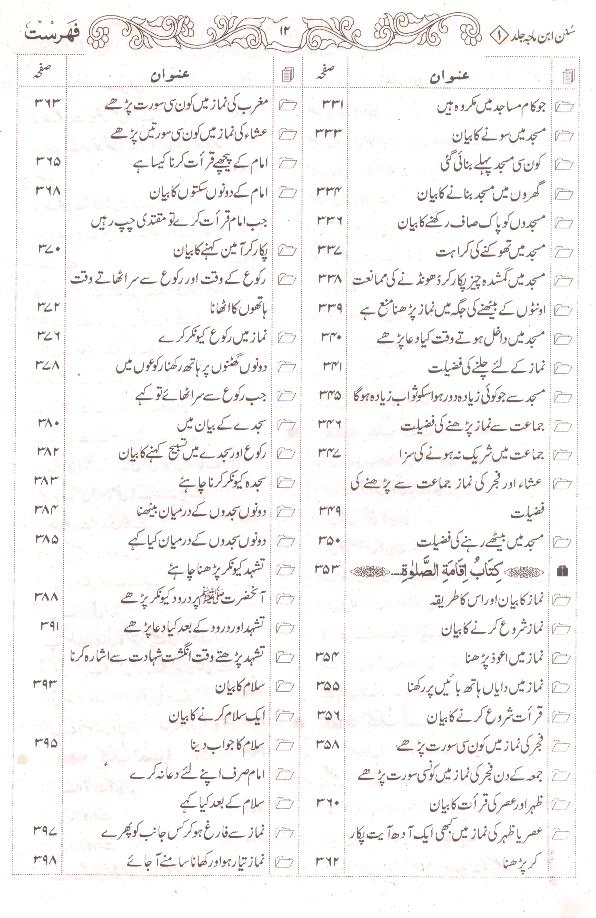 سُنن ابن ماجہ جلد ۱
۱۲
فہرست
عنوان صفحہ
جو کام مساجد میں مکروہ ہیں ۳۳۱
مسجد میں سونے کا بیان ۳۳۳
کون سی مسجد پہلے بنائی گئی
گھروں میں مسجد بنانے کا بیان ۳۳۴
مسجدوں کو پاک صاف رکھنے کا بیان ۳۳۶
مسجد میں تھوکنے کی کراہت ۳۳۷
مسجد میں گمشدہ چیز پکار کر ڈھونڈنے کی ممانعت ۳۳۸
اونٹوں کے بیٹھنے کی جگہ میں نماز پڑھنا منع ہے ۳۳۹
مسجد میں داخل ہوتے وقت کیا دعا پڑھے ۳۴۰
نماز کے لئے چلنے کی فضیلت ۳۴۱
مسجد سے جو کوئی زیادہ دور ہو اسکو ثواب زیادہ ہوگا ۳۴۵
جماعت سے نماز پڑھنے کی فضیلت ۳۴۶
جماعت میں شریک نہ ہونے کی سزا ۳۴۷
عشاء اور فجر کی نماز جماعت سے پڑھنے کی
فضیلت ۳۴۹
مسجد میں بیٹھے رہنے کی فضیلت ۳۵۰
كِتَابُ إِقَامَةِ الصَّلٰوةِ ۳۵۳
نماز کا بیان اور اس کا طریقہ
نماز شروع کرنے کا بیان
نماز میں اعوذ پڑھنا ۳۵۴
نماز میں دایاں ہاتھ بائیں پر رکھنا ۳۵۵
قرأت شروع کرنے کا بیان ۳۵۶
فجر کی نماز میں کون سی سورت پڑھے ۳۵۸
جمعہ کے دن فجر کی نماز میں کونسی سورت پڑھے
ظہر اور عصر کی قرأت کا بیان ۳۶۰
عصر یا ظہر کی نماز میں کبھی ایک آدھ آیت پکار
کر پڑھنا ۳۶۲
عنوان صفحہ
مغرب کی نماز میں کون سی سورت پڑھے ۳۶۳
عشاء کی نماز میں کون سی سورتیں پڑھے
امام کے پیچھے قرأت کرنا کیسا ہے ۳۶۵
امام کے دونوں سکتوں کا بیان ۳۶۸
جب امام قرأت کرے تو مقتدی چپ رہیں
پکار کر آمین کہنے کا بیان ۳۷۰
رکوع کے وقت اور رکوع سے سر اٹھاتے وقت
ہاتھوں کا اٹھانا ۳۷۲
نماز میں رکوع کیونکر کرے ۳۷۶
دونوں گھٹنوں پر ہاتھ رکھنا رکوعوں میں ۳۷۸
جب رکوع سے سر اٹھائے تو کہے
سجدے کے بیان میں ۳۸۰
رکوع اور سجدے میں تسبیح کہنے کا بیان ۳۸۲
سجدہ کیونکر کرنا چاہئے ۳۸۳
دونوں سجدوں کے درمیان بیٹھنا ۳۸۴
دونوں سجدوں کے درمیان کیا کہے ۳۸۵
تشہد کیونکر پڑھنا چاہئے
آنحضرت ﷺ پر درود کیونکر پڑھے ۳۸۸
تشہد اور درود کے بعد کیا دعا پڑھے ۳۹۱
تشہد پڑھتے وقت انگشت شہادت سے اشارہ کرنا
سلام کا بیان ۳۹۳
ایک سلام کرنے کا بیان
سلام کا جواب دینا ۳۹۵
امام صرف اپنے لئے دعا نہ کرے
سلام کے بعد کیا کہے
نماز سے فارغ ہو کر کس جانب کو پھرے ۳۹۷
نماز تیار ہو اور کھانا سامنے آ جائے ۳۹۸